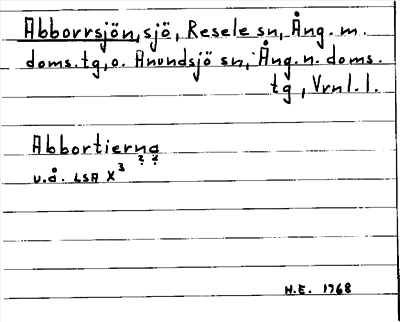 Abborrsjön, sjö, Resele sn, Ång. m.
doms. tg, o. Anundsjö sn, Ång. n. doms.
tg, Vrnl. l.
Abbortierna
? ?
u.å. LSA X³
H.E. 1968